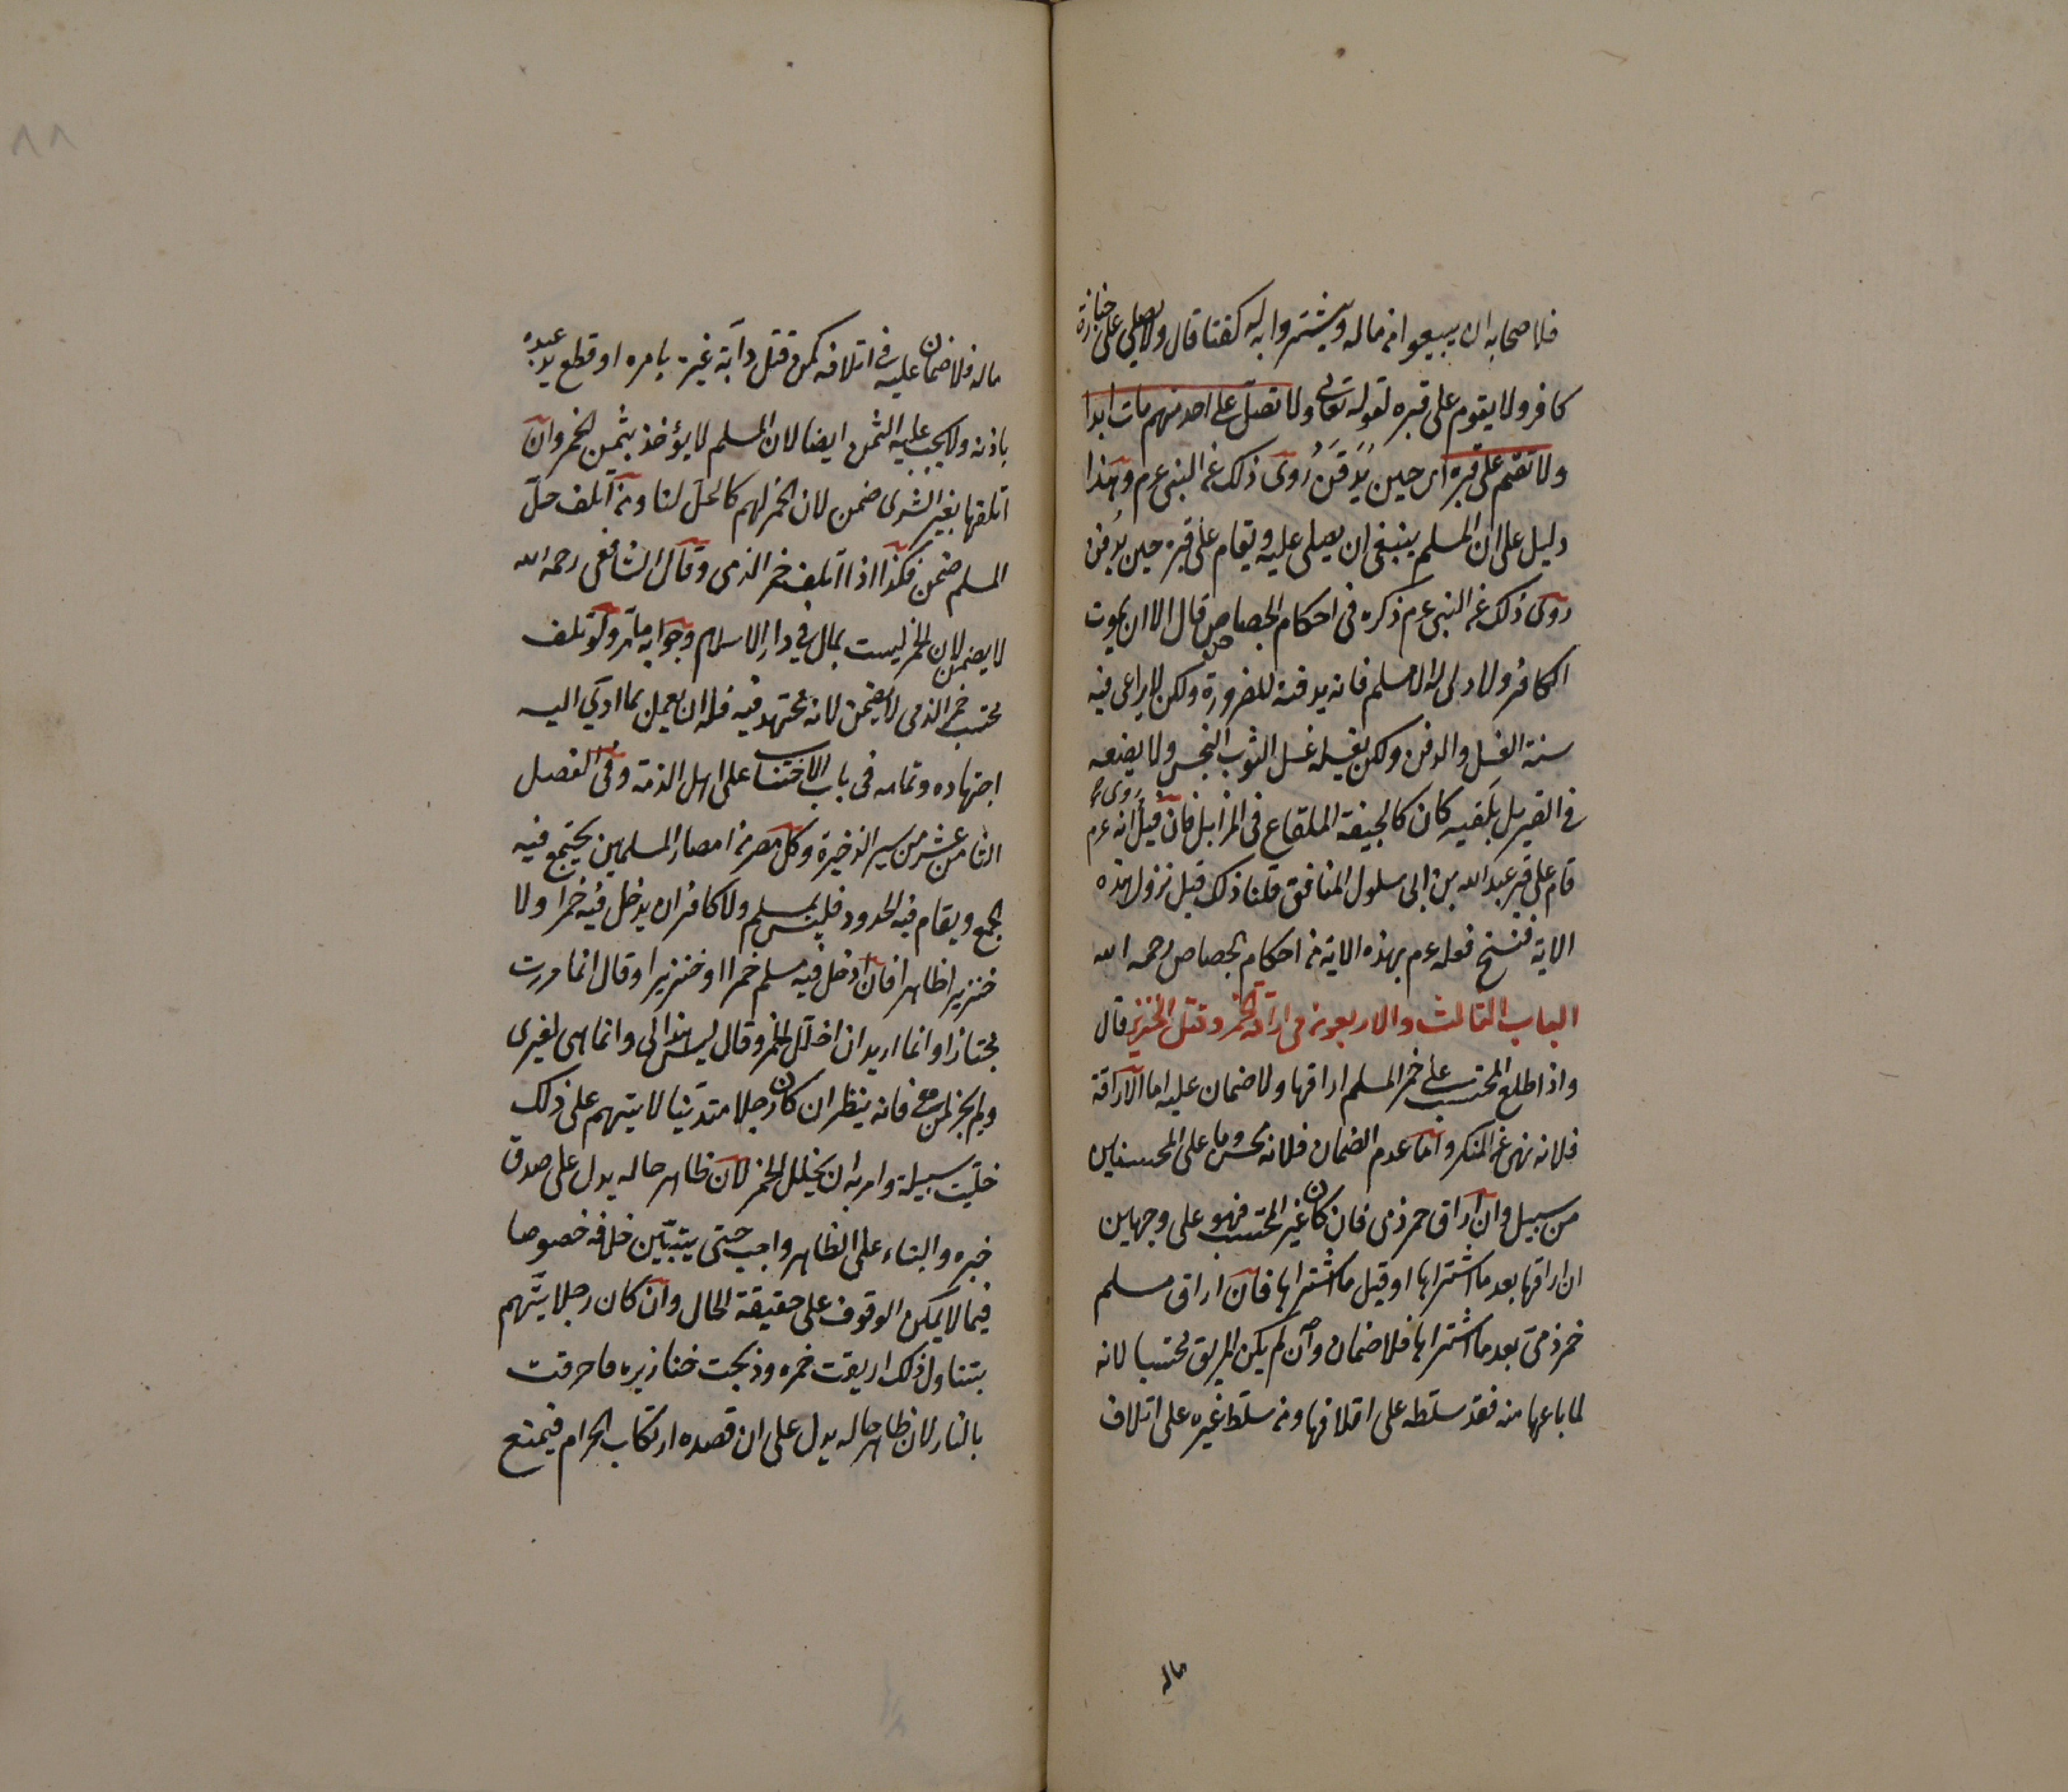 فلاصحابه ان يبيعوا من ماله ويشتروا به له كفنا قال ولا يصلي على جنازة
كافر ولا يقوم على قبره لقوله تعالى ولا تصل على احد منهم مات ابدا
ولا تقم على قبره اى حين يُدفَنُ رُوى ذلك عن النبى عم وهذا
دليل على ان المسلم ينبغى ان يصلى عليه ويقام على قبره حين يُدفن
روى ذلك عن النبى عم ذكره فى احكام الجصاص قال الا ان يموت
الكافر ولا ولى له الا مسلم فانه يدفنه للضرورة ولكن لا يراعى فيه
سنة الغسل والدفن ولكن يغسله غسل الثوب النجس ولا يضعه
فى القبر بل يلقيه كان كالجيفة الملقاع فى المزابل فان قيل رُوى انه عم
قام على قبر عبد الله بن ابى سلول المنافق قلنا ذلك قبل نزول هذه
الاية فنسخ فعله عم بهذه الاية من احكام الجصاص رحمه الله
الباب الثالث والاربعون فى اراقة الخمر وقتل الخنزير قال
واذا اطلع المحتسب على خمر المسلم اراقها ولا ضمان عليه اما الاراقة
فلانه نهى عن المنكر واما عدم الضمان فلانه محسن وما على المحسنين
من سبيل وان اراق خمر ذمى فان كان غير المحتسب فهو على وجهين
ان اراقها بعد ما اشتراها او قبل ما اشتراها فان اراق مسلم
خمر ذمى بعد ما اشتراها فلا ضمان وان لم يكن المريق محتسبا لانه
لما باعها منه فقد سلطه على اتلافها ومن سلط غيره على اتلاف
ماله
٨٨
ماله فلا ضمان عليه فى اتلافه كمن قتل دآبة غيره بامره او قطع يد عبده
باذنه ولا يجب عليه الثمن ايضا لان المسلم لا يؤخذ بثمن الخمر وان
اتلفها بغير الشرى ضمن لان الخمر لهم كالخل لنا ومن اتلف خل
المسلم ضمن فكذا اذا اتلف خمر الذمى وقال الشافعى رحمه الله
لا يضمن لان الخمر ليست بمال فى دار الاسلام وجوابه ما مر ولو تلف
محتسب خمر الذمى لا يضمن لانه مجتهد فيه فله ان يعمل بما ادى اليه
اجتهاده وتمامه فى باب الاحتساب على اهل الذمة وفى الفصل
الثامن عشر من سير الذخيرة وكل مصر من امصار المسلمين يجتمع فيه
الجمع ويقام فيه الحدود فليس لمسلم ولا كافر ان يدخل فيه خمرا ولا
خنزيرا ظاهرا فان ادخل فيه مسلم خمرا او خنزيرا وقال انما مررت
مجتازا وانما اريد ان اخلل الخمر وقال ليس هذا لى وانما هى لغيرى
ولم يخبر لمن هى فانه ينظر ان كان رجلا متدينا لا يتهم على ذلك
خليت سبيله وامر به ان يخلل الخمر لان ظاهر حاله يدل على صدق
خبره والبناء على الظاهر واجب حتى يتبين خلافه خصوصا
فيما لا يمكن الوقوف على حقيقة الحال وان كان رجلا يتهم
بتناول ذلك اريقت خمره وذبحت خنازيره فاحرقت
بالنار لان ظاهر حاله يدل على ان قصده ارتكاب الحرام فيمنع